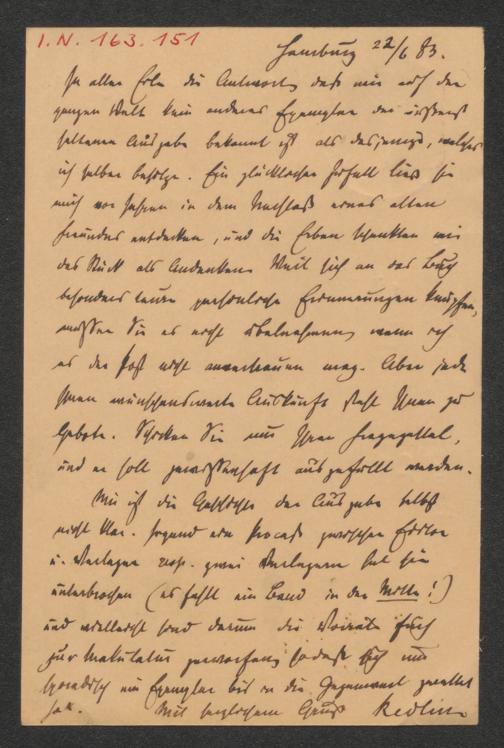 I.N. 163.151
Hamburg 22/6 83.
In aller Eile die Antwort, daß mir auf der
ganzen Welt kein anderes Exemplar der äußerst
seltenen Ausgabe bekannt ist als dasjenige, welches
ich selber besitze. Ein glücklicher Zufall ließ sie
mich vor Jahren in dem Nachlaß eines alten
Freundes entdecken, und die Erben schenkten mir
das Stück als Andenken. Weil sich an das Buch
besonders teure persönliche Erinnerungen knüpfen,
müssen Sie es nicht übelnehmen, wenn ich
es der Post nicht anvertrauen mag. Aber jede
Ihnen wünschenswerte Auskunft steht Ihnen zu
Gebote. Schicken Sie mir Ihren Fragezettel,
und er soll gewissenhaft ausgefüllt werden.
Mir ist die Geschichte der Ausgabe selbst
nicht klar. Irgend ein Proceß zwischen Editor
u. Verleger resp. zwei Verlegern hat sie
unterbrochen (es fehlt ein Band in der Mitte!)
und vielleicht sind darum die Vorräte früh
zur Makulatur geworfen, sodaß sich nur
sporadisch ein Exemplar bis in die Gegenwart gerettet
hat. Mit herzlichem Gruß Redlich